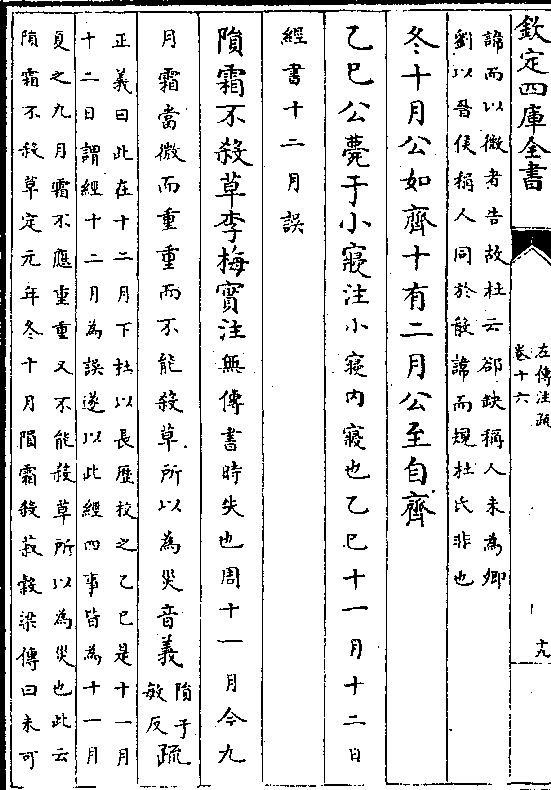 欽定四庫全書
左傳注疏
卷十六
十九
諱而以微者告故杜云郤缺稱人未為卿
劉以晉侯稱人同於殽諱而規杜氏非也
冬十月公如齊十有二月公至自齊
乙巳公薨于小寢注小寢内寢也乙巳十一月十二日
經書十二月誤
隕霜不殺草李梅實注無傳書時失也周十一月今九
月霜當微而重重而不能殺草所以為災音義隕于敏反疏
正義曰此在十二月下杜以長厯校之乙巳是十一月
十二日謂經十二月為誤遂以此經四事皆為十一月
夏之九月霜不應重重又不能殺草所以為災也此云
隕霜不殺草定元年冬十月隕霜殺菽穀梁傳曰未可